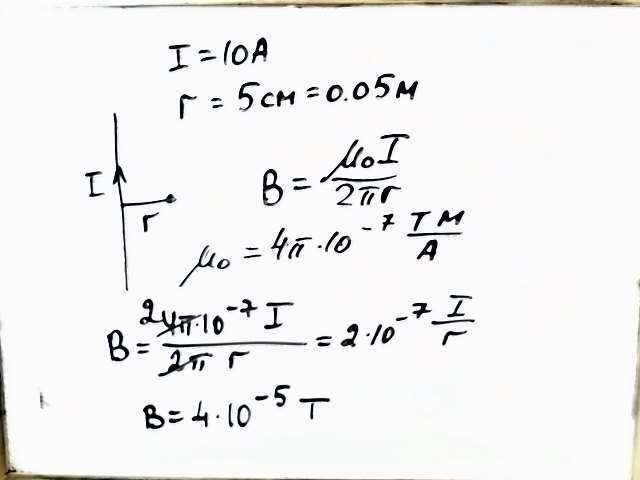 I = 10A
r = 5см = 0.05м
I
r
B = μ₀I / 2πr
μ₀ = 4π·10⁻⁷ Tм / A
B = 2 4π·10⁻⁷ I / 2π r = 2·10⁻⁷ I / r
B = 4·10⁻⁵ T